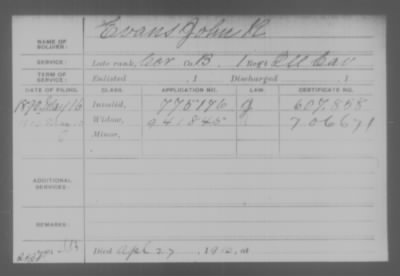 NAME OF SOLDIER: Evans John R
SERVICE: Late rank, Cor Co. B, 1 Reg't Ill Cav
TERM OF SERVICE: Enlisted , 1 Discharged , 1
DATE OF FILING. CLASS. APPLICATION NO. LAW. CERTIFICATE NO.
1890 May 16 Invalid, 775176 J 607.858
Widow, 941845 706671
Minor,
ADDITIONAL SERVICES:
REMARKS:
Died Apl 27, 1910, at